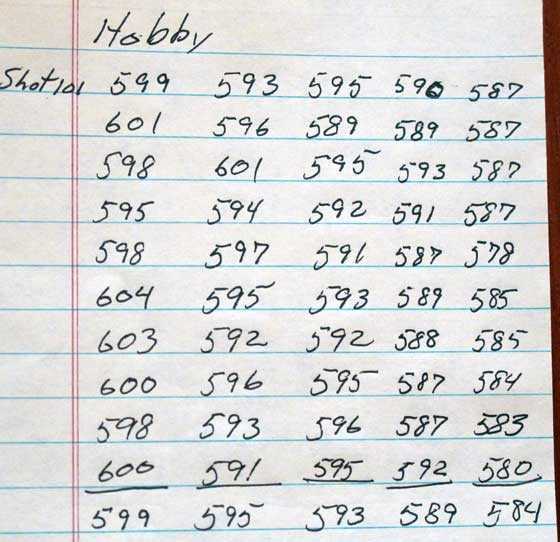 Hobby
Shot 101 599 593 595 590 587
601 596 589 589 587
598 601 595 593 587
595 594 592 591 587
598 597 591 587 578
604 595 593 589 585
603 592 592 588 585
600 596 595 587 584
598 593 596 587 583
600 591 595 592 580
599 595 593 589 584